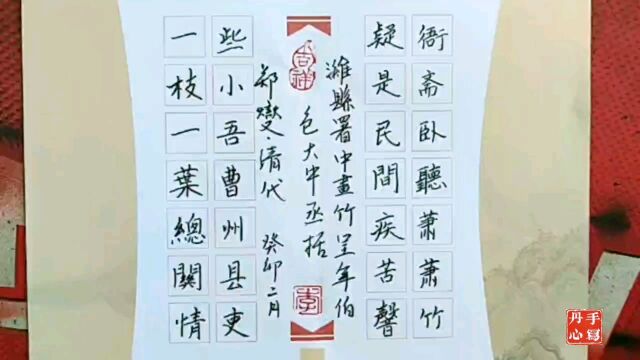 衙斋卧聽蕭蕭竹
疑是民間疾苦聲
濰縣署中畫竹呈年伯
包大中丞括
吉祥
李
郑燮·清代 癸卯二月
些小吾曹州县吏
一枝一葉總關情
手寫
丹心